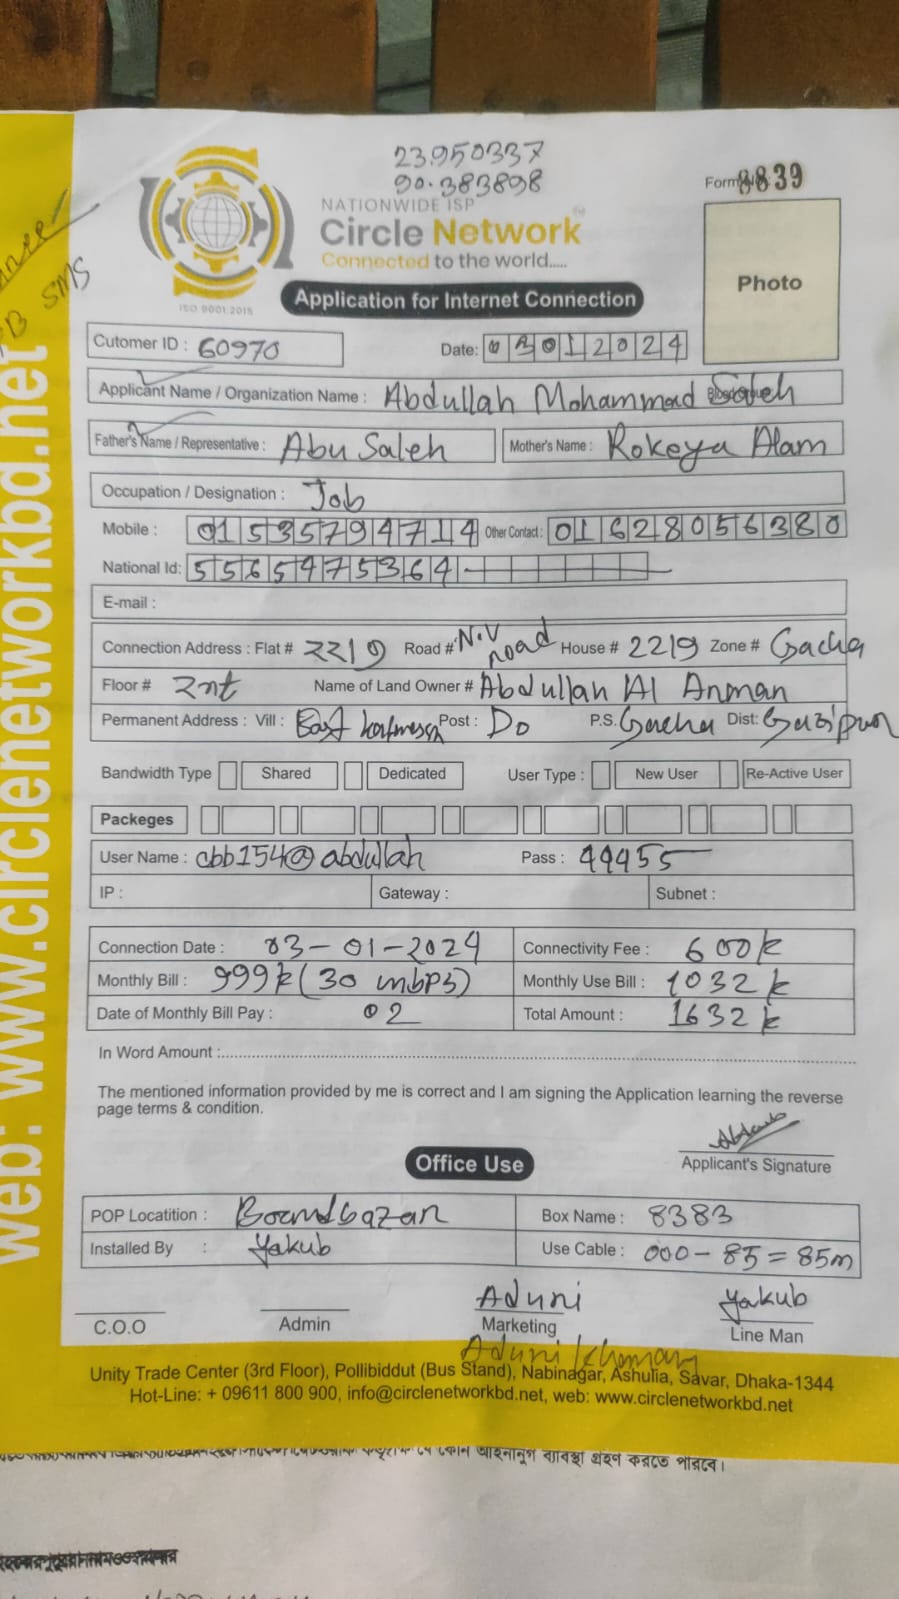 23.950337
90.383898
Form 8839
NATIONWIDE ISP
Circle Network
Connected to the world.....
ISO 9001:2015
Application for Internet Connection
Photo
SMS
Cutomer ID : 60970
Date: 03012024
Applicant Name / Organization Name : Abdullah Mohammad Saleh
Father's Name / Representative : Abu Saleh Mother's Name : Rokeya Alam
Occupation / Designation : Job
Mobile : 01535794714 Other Contact : 01628056380
National Id: 5565975364
E-mail :
Connection Address : Flat # 2219 Road # N.V road House # 2219 Zone # Gacha
Floor # 2nt Name of Land Owner # Abdullah Al Anman
Permanent Address : Vill : East Post : Do P.S. Gacha Dist: Gazipur
Bandwidth Type Shared Dedicated User Type : New User Re-Active User
Packeges
User Name : cbb154@abdullah Pass : 49455
IP : Gateway : Subnet :
Connection Date : 03-01-2024 Connectivity Fee : 600k
Monthly Bill : 999k (30 mbps) Monthly Use Bill : 1032 k
Date of Monthly Bill Pay : 02 Total Amount : 1632 k
In Word Amount :
The mentioned information provided by me is correct and I am signing the Application learning the reverse
page terms & condition.
Applicant's Signature
Office Use
POP Locatition : Boardbazar Box Name : 8383
Installed By : Yakub Use Cable : 000 - 85 = 85m
Aduni Yakub
C.O.O Admin Marketing Line Man
Aduni
Unity Trade Center (3rd Floor), Pollibiddut (Bus Stand), Nabinagar, Ashulia, Savar, Dhaka-1344
Hot-Line: + 09611 800 900, info@circlenetworkbd.net, web: www.circlenetworkbd.net
web: www.circlenetworkbd.net
যে কোন আইনানুগ ব্যবস্থা গ্রহণ করতে পারবে।